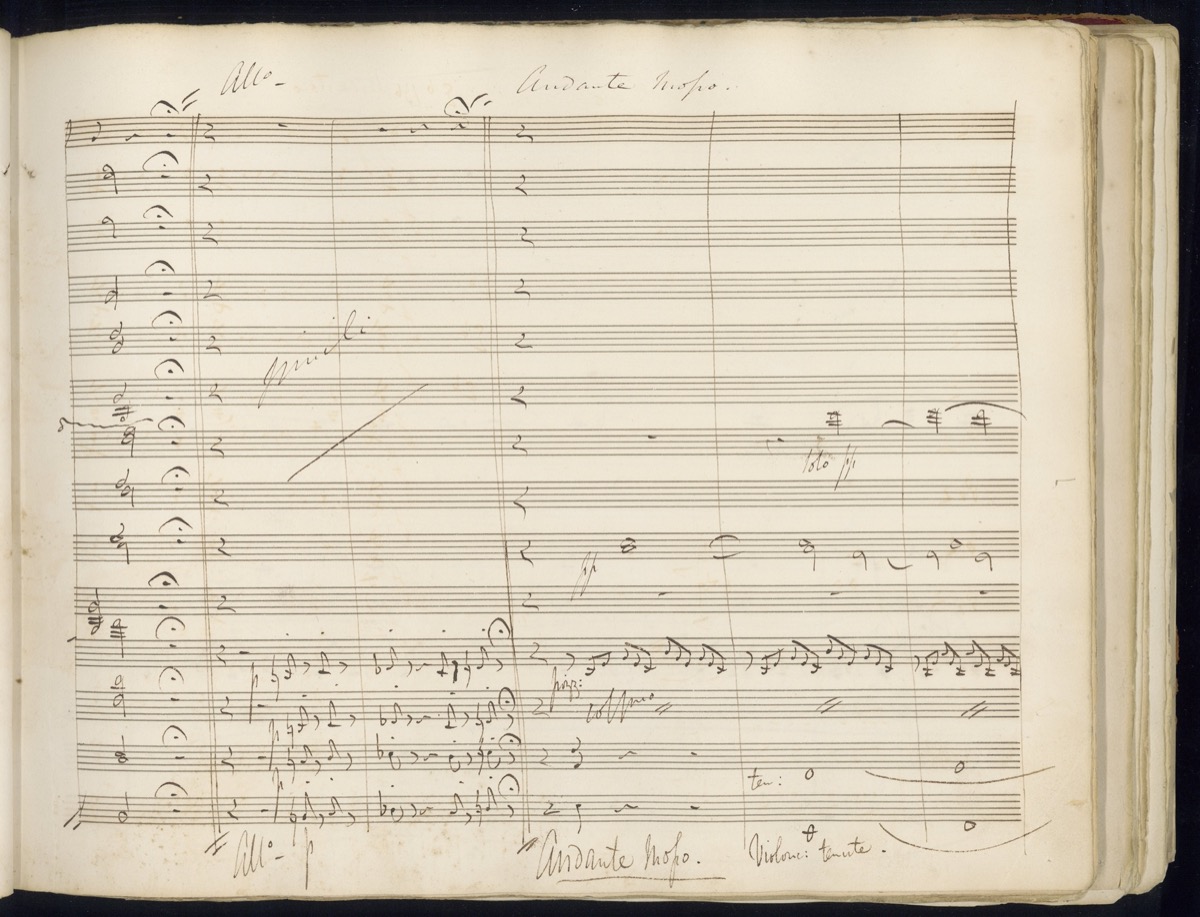 Allo
Andante mosso.
simili
Solo pp
pp
p
pizz:
col pmo
p
p
ten:
p
Allo
Andante mosso.
Violonc: tenute.